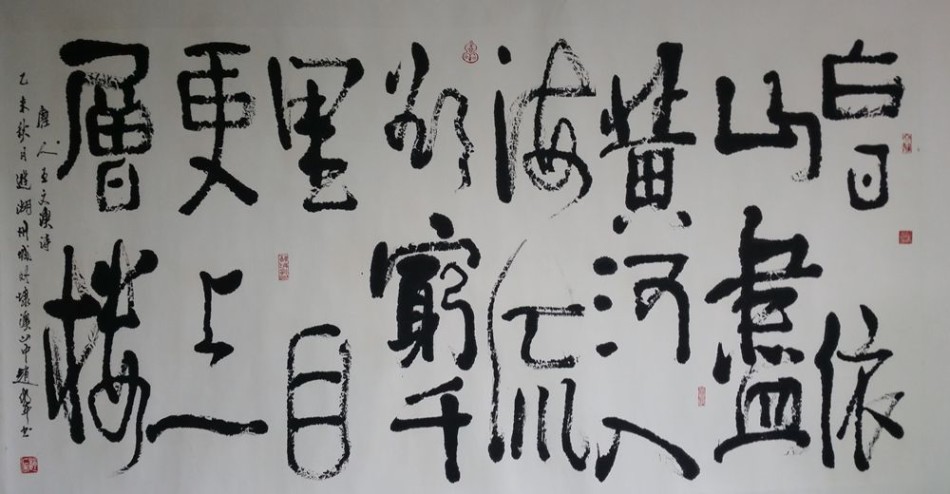 白日依
山盡
黃河入
海流
欲窮千
里目
更上
層樓
唐人王之渙詩
乙未秋月遊湖州